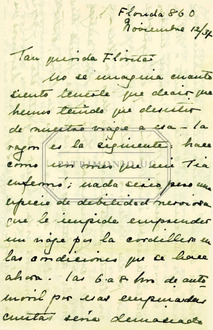 Florida 860
Noviembre 12/34
Tan querida Florita:
No se imagina cuanto
siento tenerle que decir que
hemos tenido que desistir
de nuestro viaje a esa – la
razon es la siguiente hace
como un mes que mi Tia
enferma; nada serio pero una
especie de debilidad nerviosa
que le impide emprender
un viaje por la cordillera en
las condiciones que se hace
ahora. Las 6 a 8 hrs de auto
movil por esas empinadas
cuestas seria demasiado